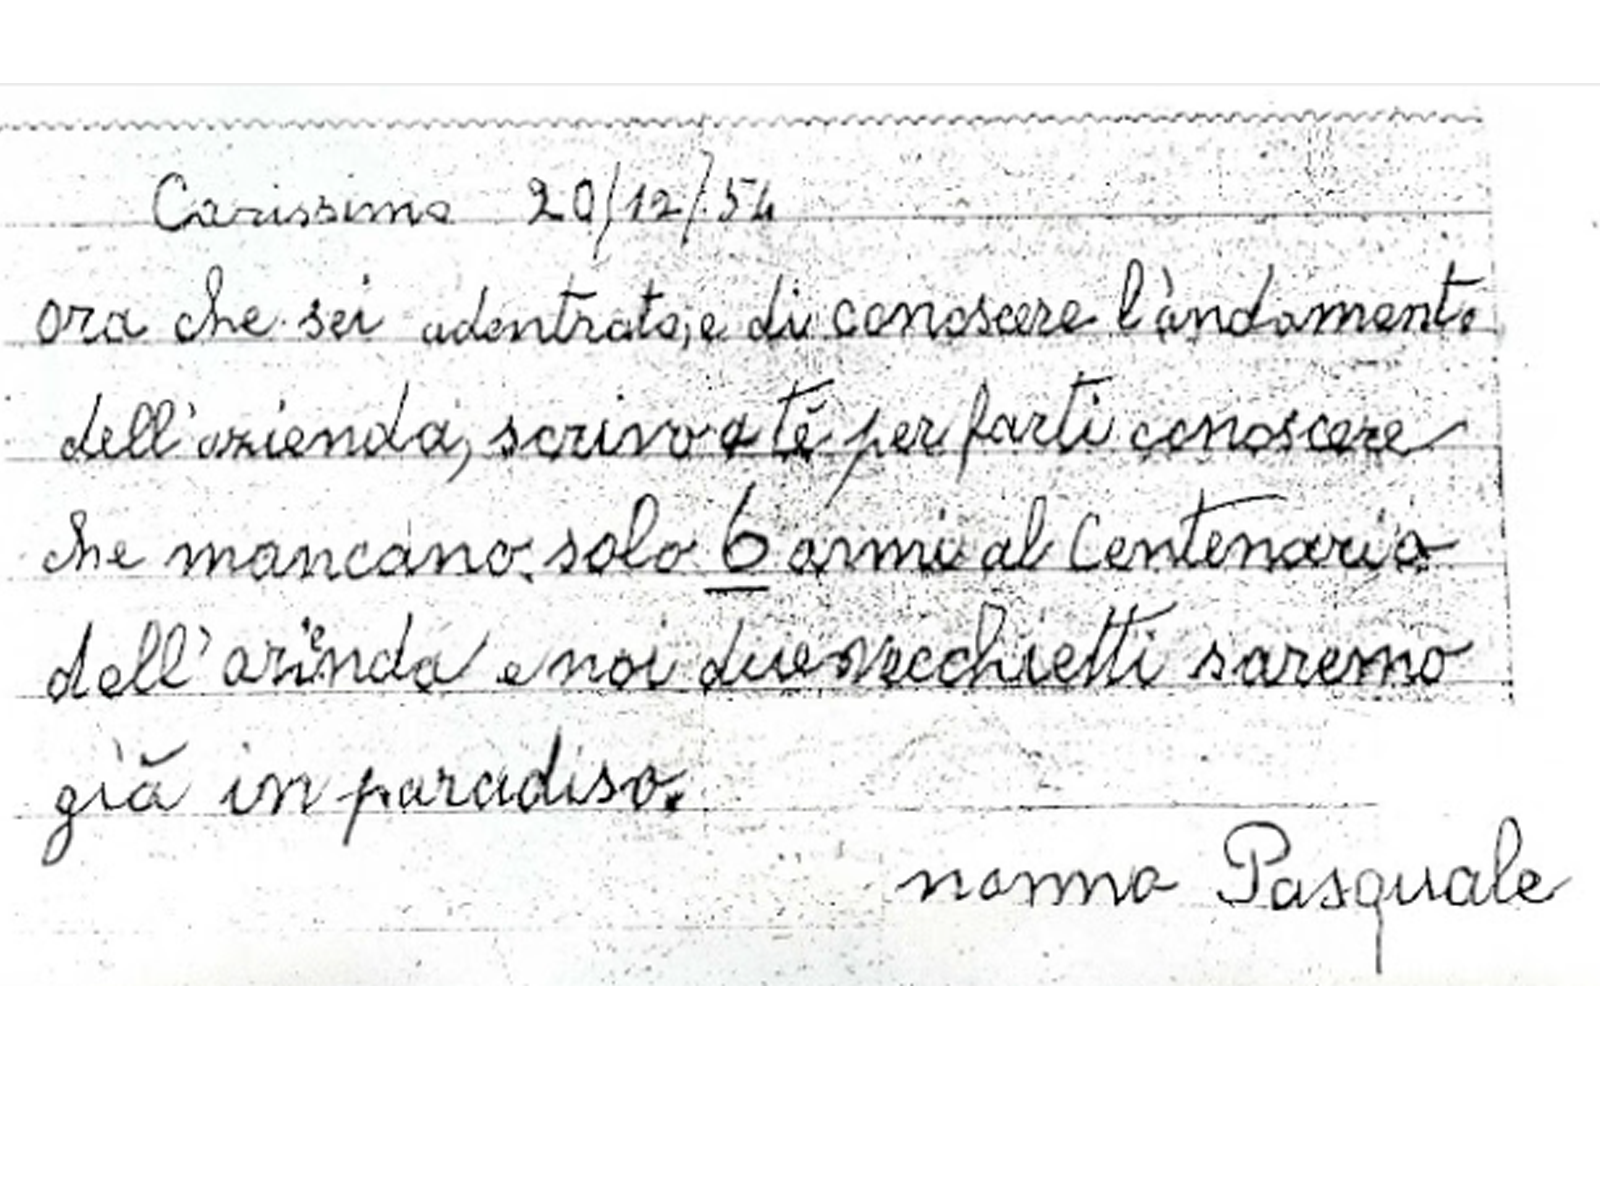 Carissimo 20/12/54
ora che sei adentrato, e di conoscere l'àndamento
dell'azienda, scrivo a té per farti conoscere
che mancano solo 6 anni al Centenario
dell'azienda e noi due vecchietti saremo
già in paradiso.
nonno Pasquale